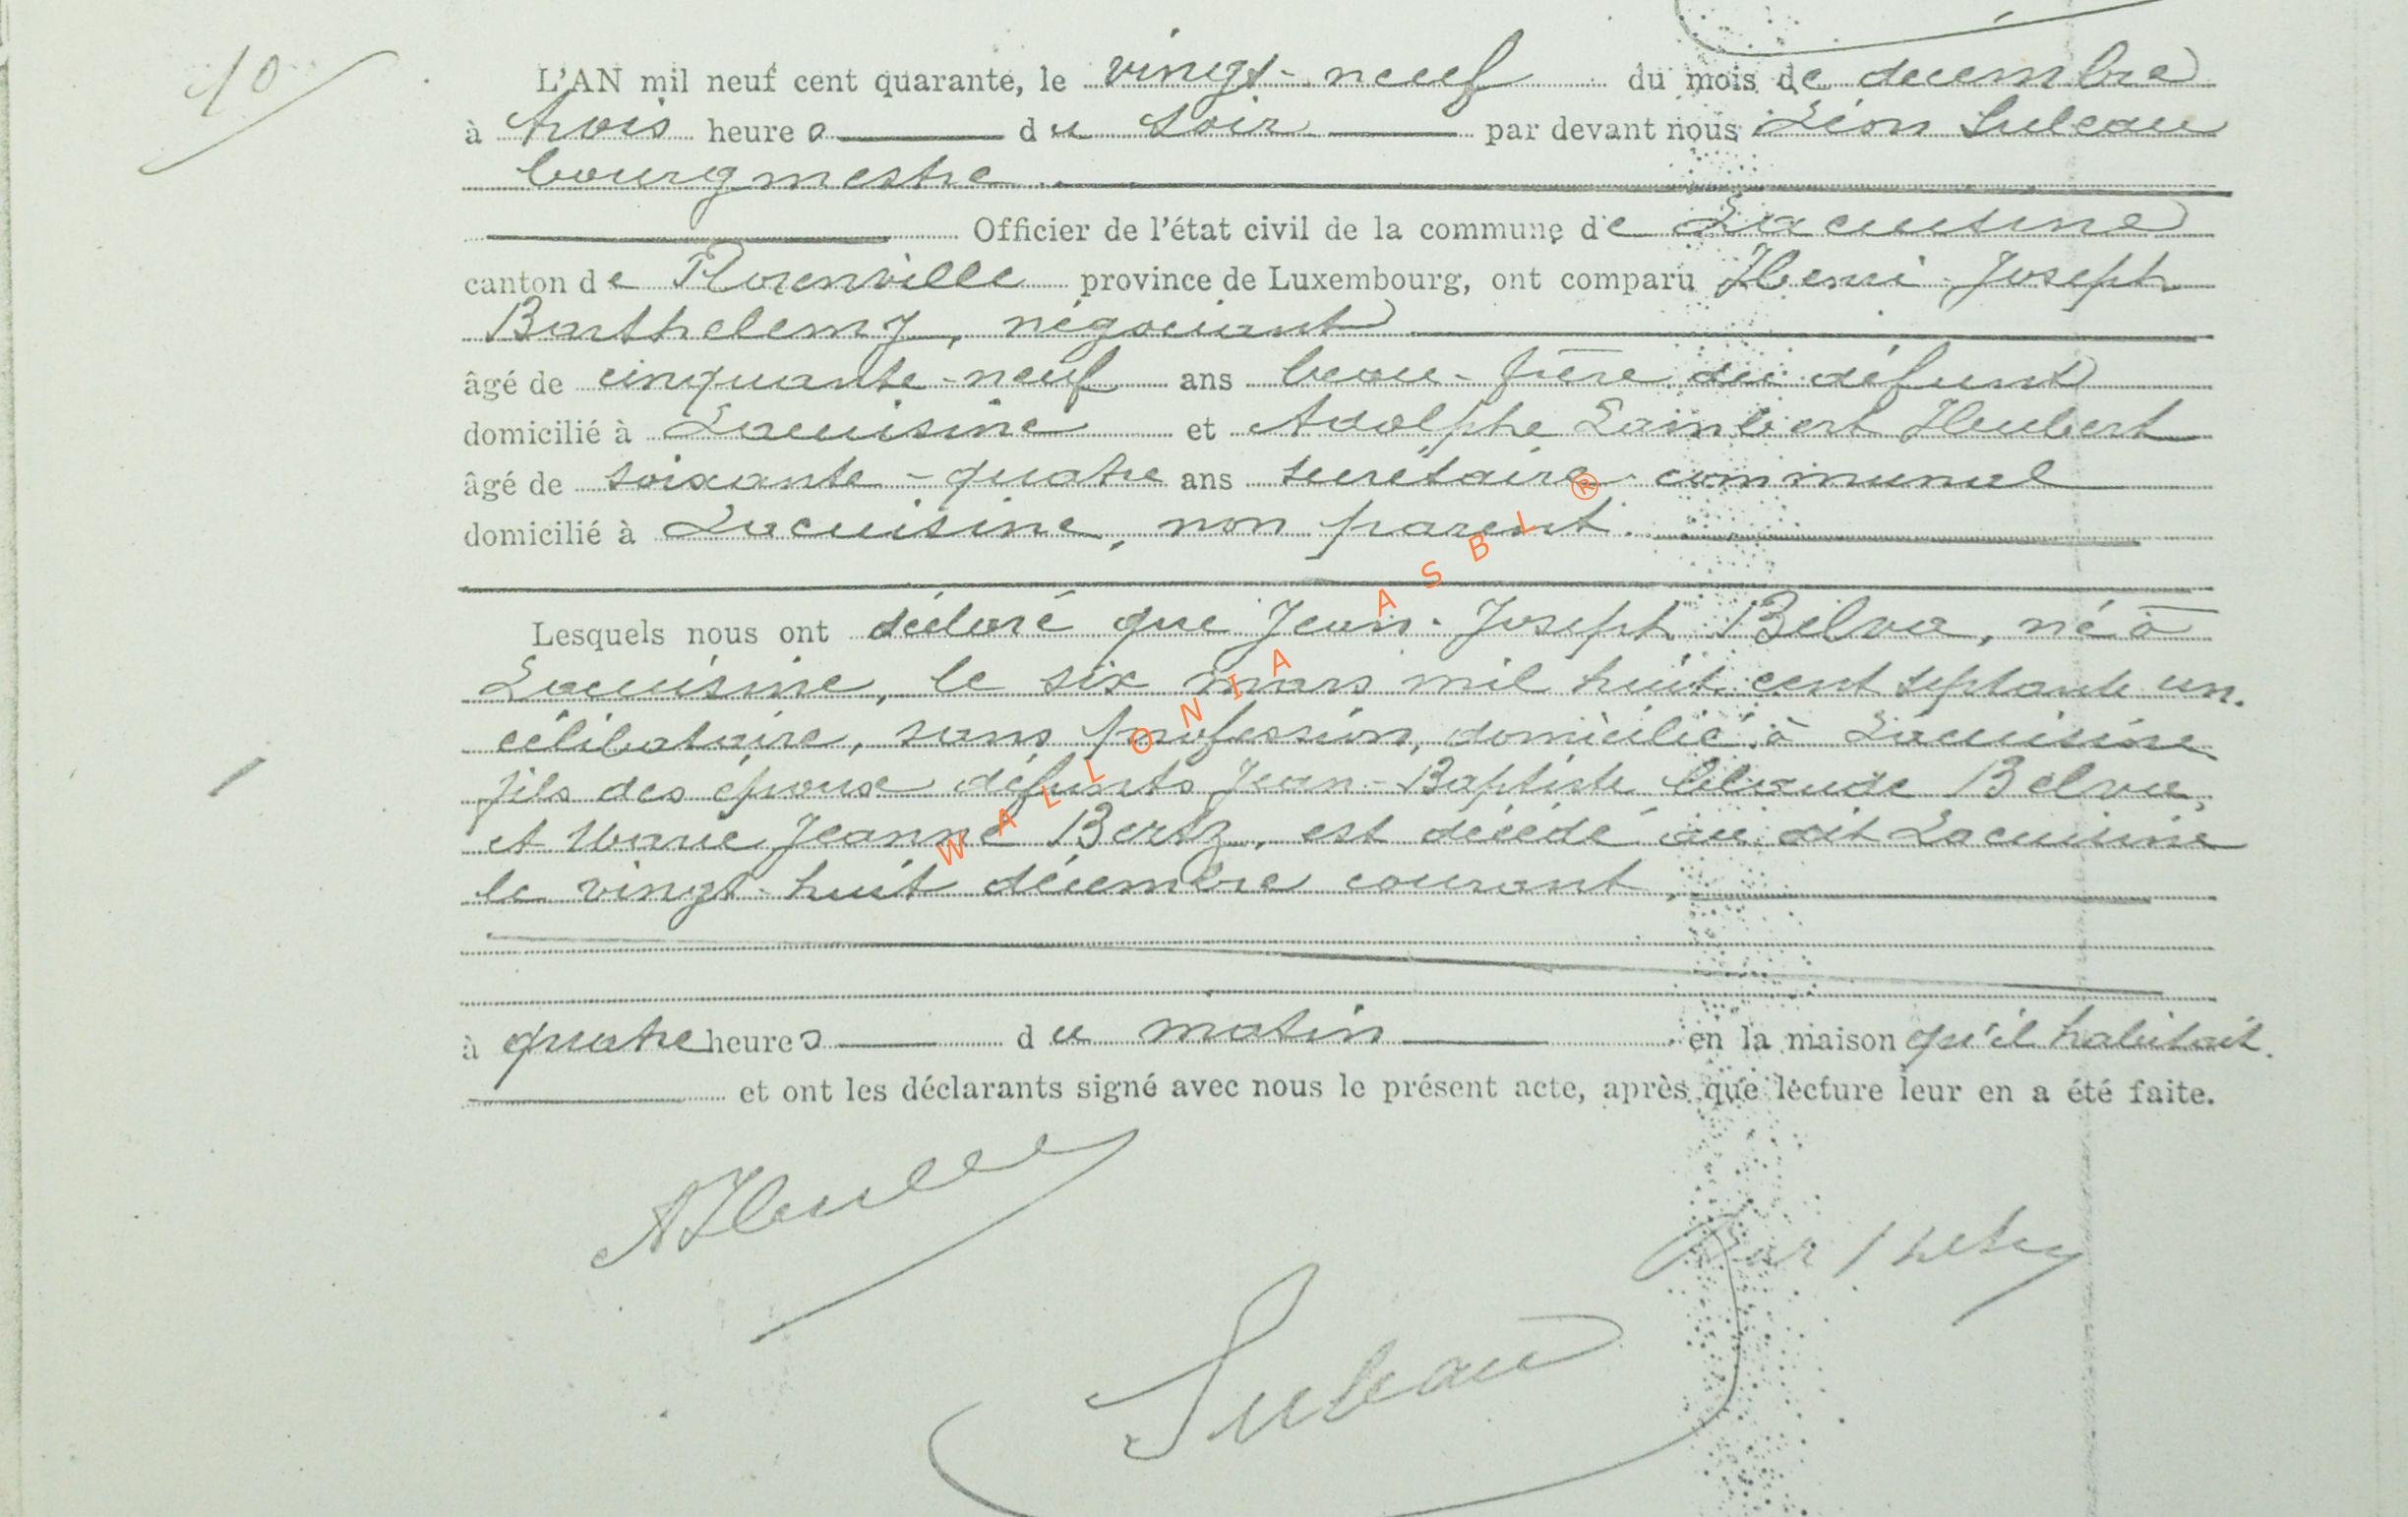 10
L'AN mil neuf cent quarante, le vingt-neuf du mois de décembre
à trois heures du soir par devant nous Léon Suleau
bourgmestre
Officier de l'état civil de la commune de Lacuisine
canton de Florenville province de Luxembourg, ont comparu Henri Joseph
Barthelemy, négociant
âgé de cinquante-neuf ans beau-frère du défunt
domicilié à Lacuisine et Adolphe Lambert Hubert
âgé de soixante-quatre ans secrétaire communal
domicilié à Lacuisine, non parent.
Lesquels nous ont déclaré que Jean-Joseph Belva, né à
Lacuisine, le six mars mil huit cent septante un.
célibataire, sans profession, domicilié à Lacuisine
fils des époux défunts Jean-Baptiste Claude Belva,
et Marie Jeanne Bertz, est décédé au dit Lacuisine
le vingt-huit décembre courant,
à quatre heures du matin en la maison qu'il habitait.
et ont les déclarants signé avec nous le présent acte, après que lecture leur en a été faite.
Suleau
WALLONIA ASBL ®